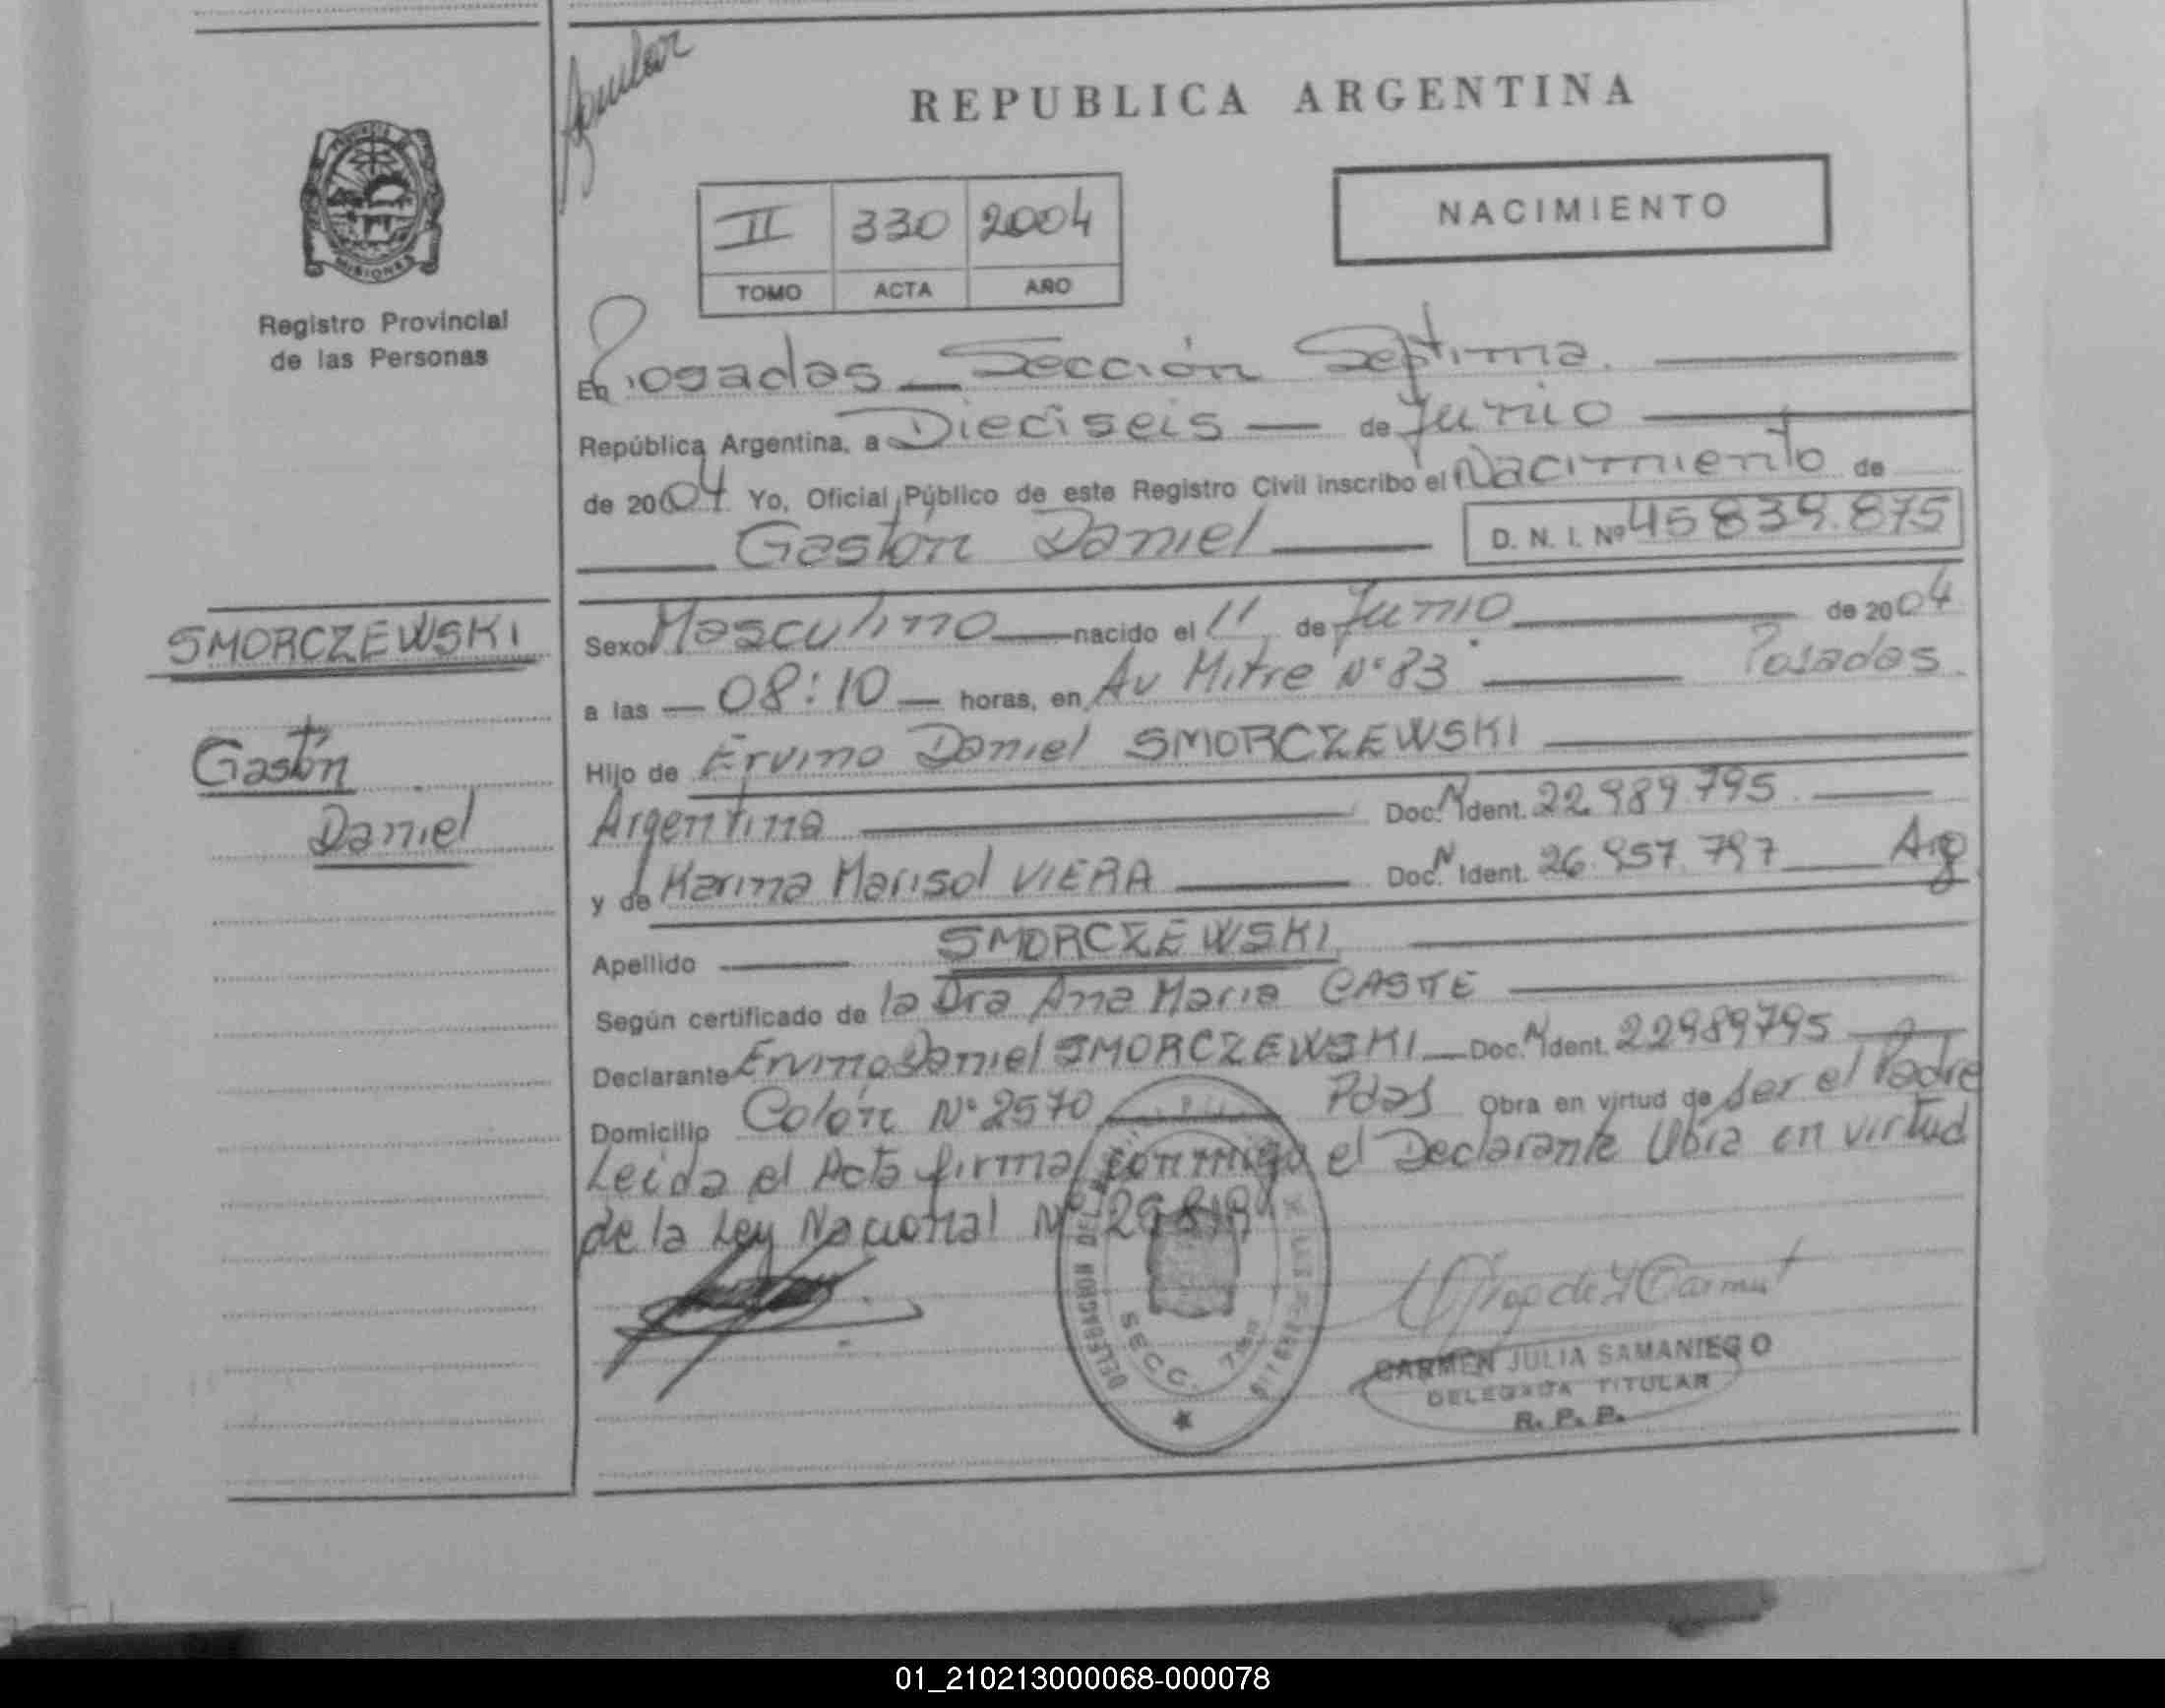 REPUBLICA ARGENTINA
MISIONES
Registro Provincial
de las Personas
NACIMIENTO
II 330 2004
TOMO ACTA AÑO
En Posadas — Sección Septima.
República Argentina, a Dieciseis — de Junio
de 2004 Yo, Oficial Público de este Registro Civil inscribo el Nacimiento de
Gastón Daniel D. N. I. Nº 45 839.875
SMORCZEWSKI
Gastón
Daniel
Sexo Masculino nacido el 11 de Junio de 2004
a las — 08:10 — horas, en Av Mitre Nº 83 Posadas
Hijo de Ervino Daniel SMORCZEWSKI
Argentina Doc. N Ident. 22.989.795
y de Karina Marisol VIERA Doc. N Ident. 26.957.797 Arg
Apellido SMORCZEWSKI
Según certificado de la Dra Ana Maria CASTE
Declarante Ervino Daniel SMORCZEWSKI Doc. N Ident. 22989795
Domicilio Colón Nº 2570 Pdas Obra en virtud de Ser el Padre
Leida el Acta firma conmigo el Declarante Obra en virtud
de la Ley Nacional Nº
SECC. 7ma
CARMEN JULIA SAMANIEGO
DELEGADA TITULAR
R. P. P.
01_210213000068-000078